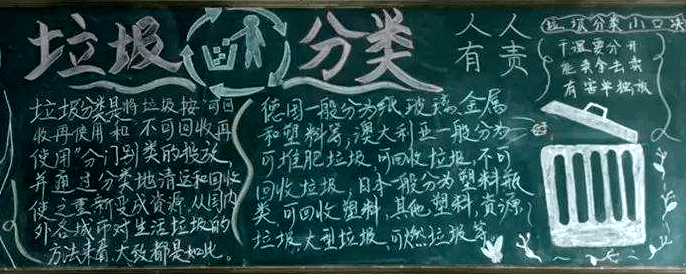 垃圾分类
人人有责
垃圾分类小口诀
干湿要分开
能卖拿去卖
有害单独放
垃圾分类是将垃圾按"可回
收再使用"和"不可回收再
使用"分门别类的投放,
并通过分类地清运和回收
使之重新变成资源,从国内
外各城市对生活垃圾的
方法来看,大致都是如此。
德国一般分为纸、玻璃、金属
和塑料等,澳大利亚一般分为
可堆肥垃圾,可回收垃圾,不可
回收垃圾,日本一般分为塑料瓶
类,可回收塑料,其他塑料,资源
垃圾,大型垃圾,可燃垃圾等。